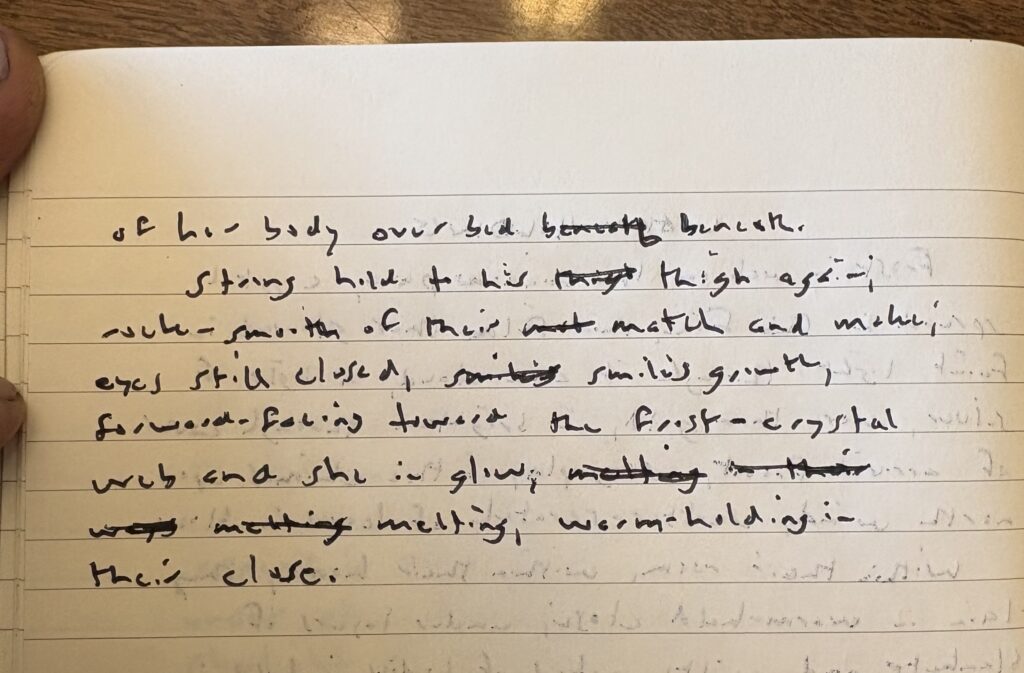 of her body over bed beneath beneath.
String hold to his thigh thigh again;
smooth of their match and make;
eyes still closed, smiling smiling growth,
forward-facing toward the frost-crystal
web and she in glow, melting in their
ways melting melting, warm-holding in
their close.